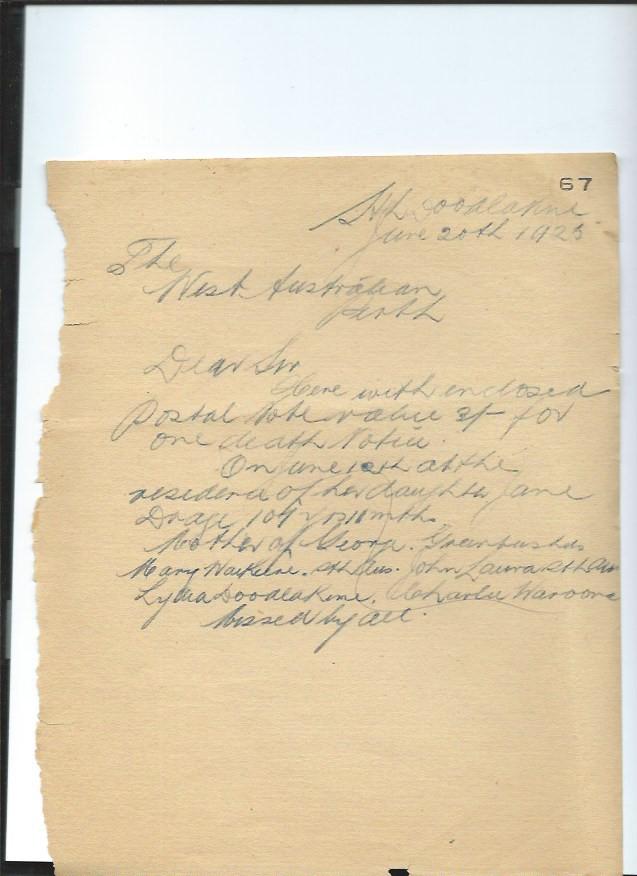 67
Sth Doodlakine
June 20th 1925
The
West Australian
Perth
Dear Sir
Here with enclosed
Postal Note value 3/- for
one death Notice.
On June 12th at the
residence of her daughter Jane
Drage 109 yrs 11 mths
Mother of George. Greenbushes
Mary Waikerie. Sth Aus. John Laura Sth Aus
Lydia Doodlakine. Charlie Waroona
Missed by all.